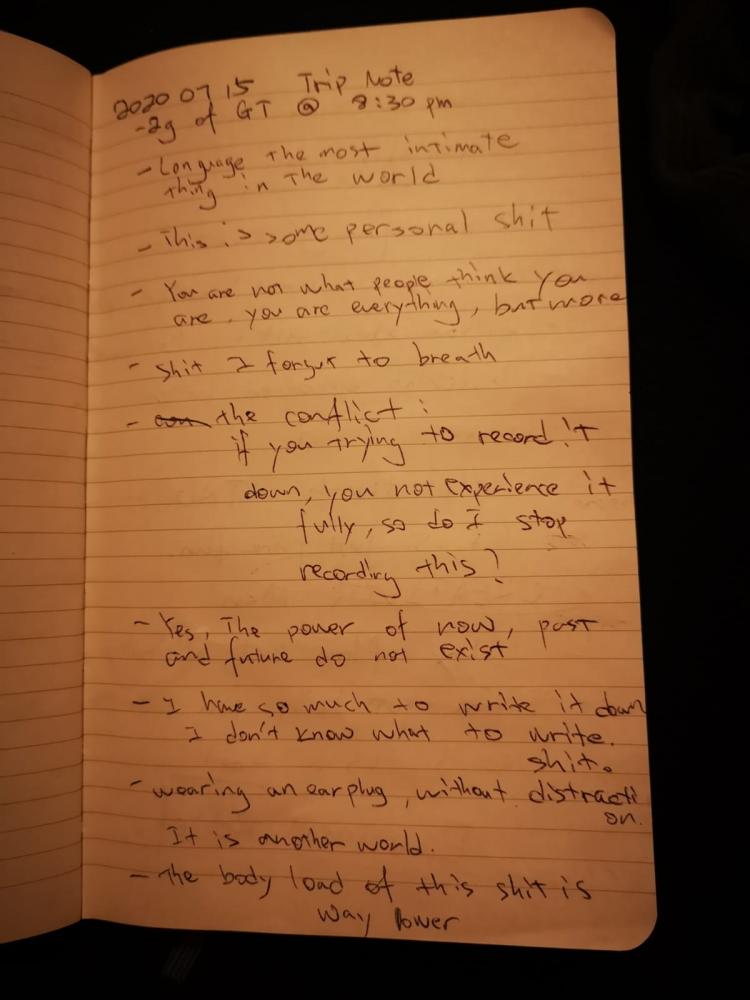 2020 07 15 Trip Note
-2g of GT @ 8:30 pm
- Language the most intimate
thing in the world
- This is some personal shit
- You are not what people think you
are, you are everything, but more
- shit I forgot to breath
- the conflict:
if you trying to record it
down, you not experience it
fully, so do I stop
recording this?
- Yes, The power of now, past
and future do not exist
- I have so much to write it down
I don't know what to write.
shit.
- wearing an earplug, without distracti
on.
It is another world.
- The body load of this shit is
way lower